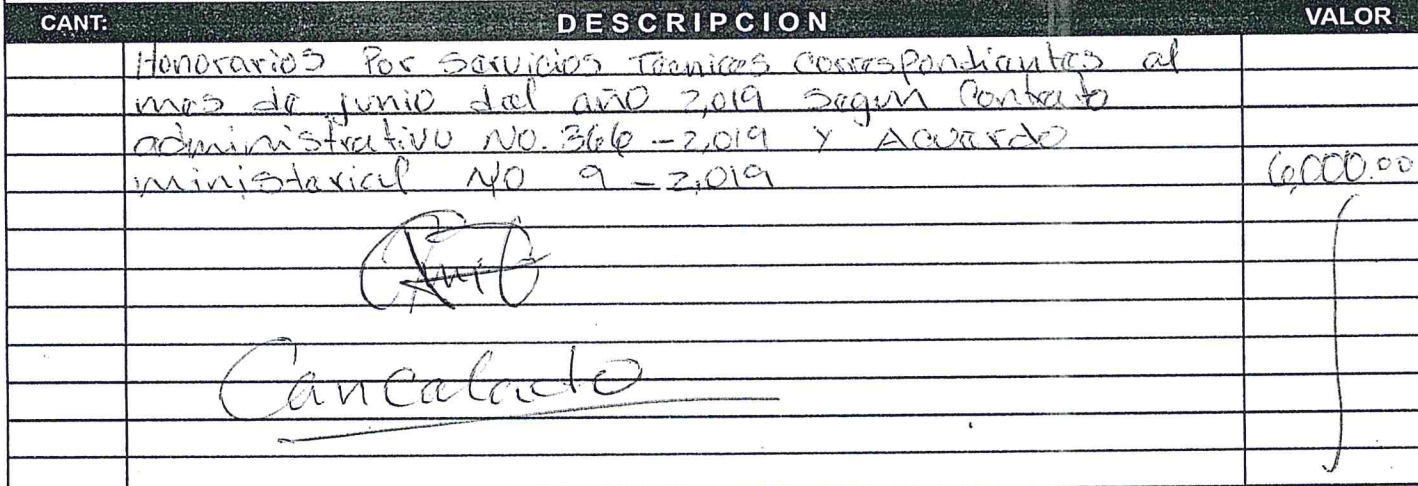 CANT: DESCRIPCION VALOR
Honorarios Por Servicios Tecnicos Correspondientes al
mes de junio del año 2,019 Segun Contrato
administrativo No. 366-2,019 Y Acuerdo
ministerial NO 9-2,019 6,000.00
Cancelado